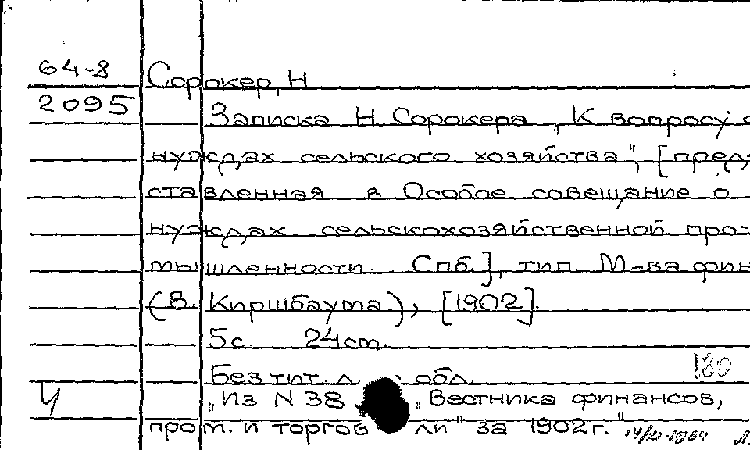 64-8 Сорокер, Н
2095
Записка Н. Сорокера „К вопросу о
нуждах сельского хозяйства", [пред-
ставленная в Особое совещание о
нуждах сельскохозяйственной про-
мышленности. Спб.], тип. М-ва фин
(В. Киршбаума), [1902].
5с. 24см.
Без тит. л. обл.
180
„Из N 38 „Вестника финансов,
пром. и торговли" за 1902г."